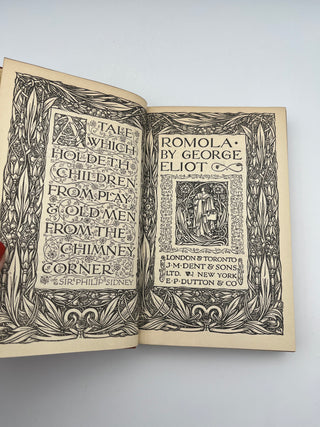 A TALE
WHICH
HOLDETH
CHILDREN
FROM PLAY
& OLD MEN
FROM THE
CHIMNEY
CORNER
SIR PHILIP SIDNEY
ROMOLA·
BY GEORGE
ELIOT
LONDON & TORONTO
J·M·DENT & SONS
LTD. NEW YORK
E·P·DUTTON & CO